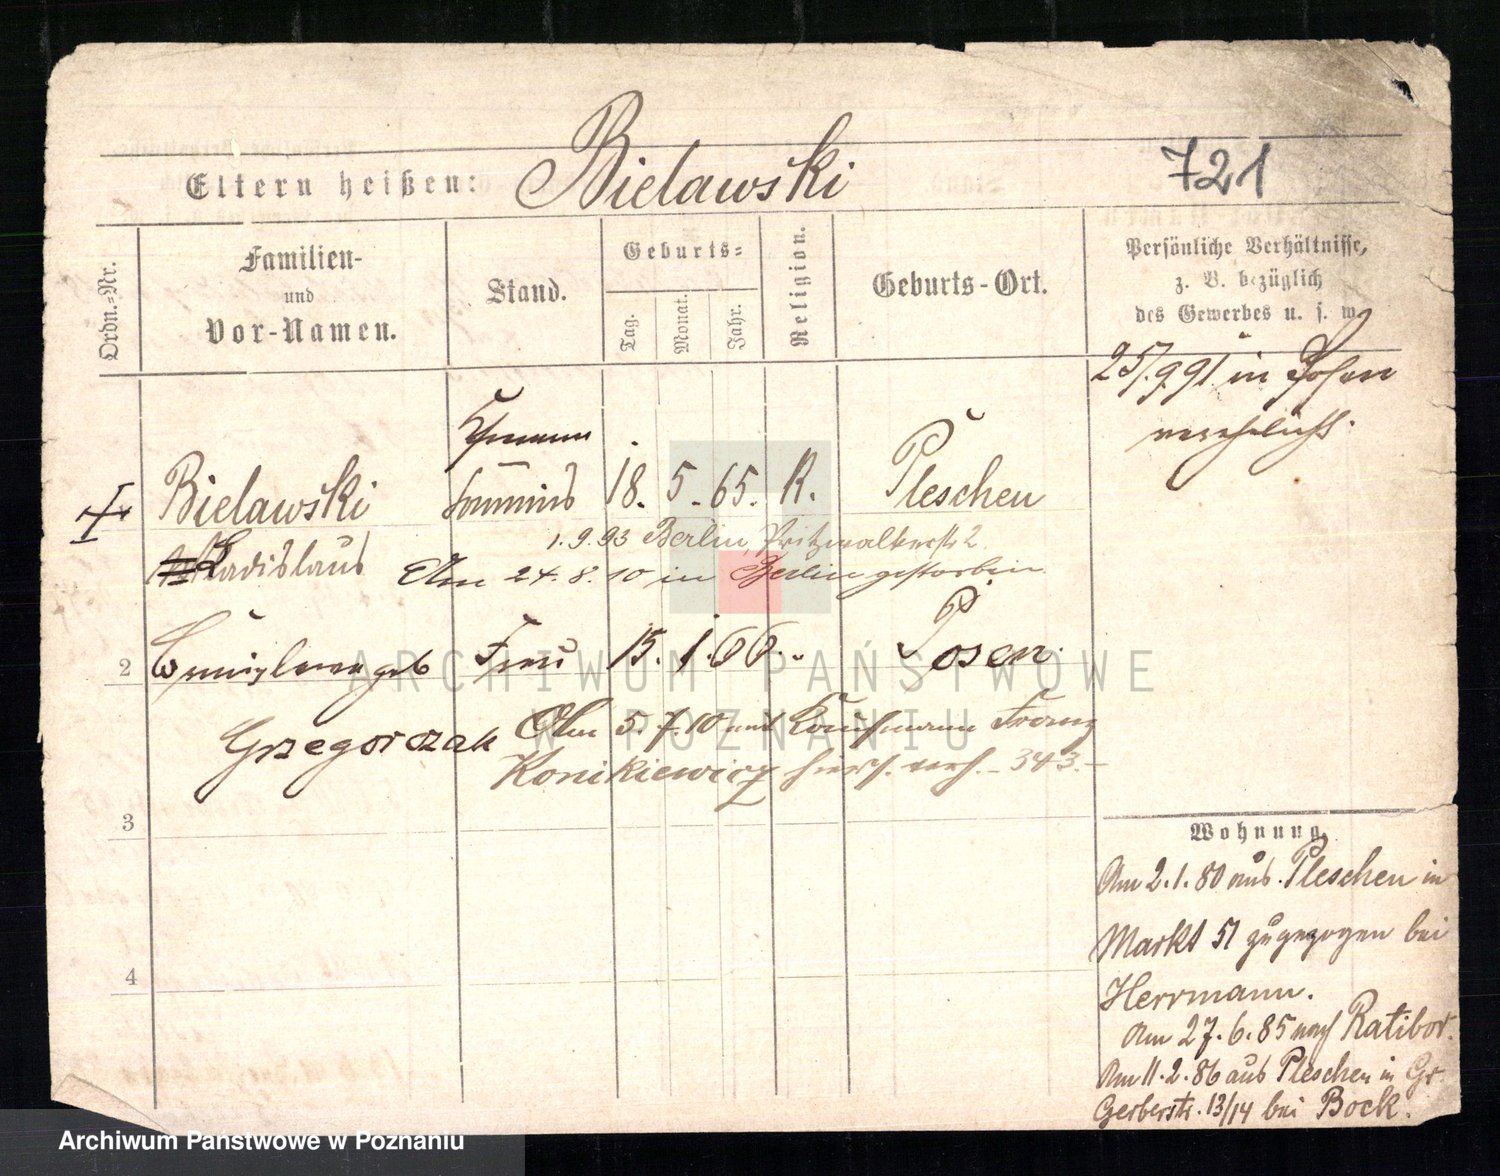 Bielawski
721
Eltern heißen:
Ordn.-Nr.
Familien-
und
Vor-Namen.
Stand.
Geburts-
Tag.
Monat.
Jahr.
Religion.
Geburts-Ort.
Persönliche Verhältnisse,
z. B. bezüglich
des Gewerbes u. s. w.
25/9.91 in Posen
verehelicht.
Bielawski
18. 5. 65. R. Pleschen
Ladislaus
1.9.93 Berlin,
Am 24.8.10 in Berlin gestorben
2 geb Frau 15. 1. 66. Posen.
Grzegorczak Am 5.7.10 mit Kaufmann Franz
Konikiewicz hiers. verh. - 343.-
3
4
Wohnung.
Am 2.1.80 aus Pleschen in
Markt 51 zugezogen bei
Herrmann.
Am 27.6.85 nach Ratibor.
Am 11.2.86 aus Pleschen in Gr.
Gerberstr. 13/14 bei Bock.
ARCHIWUM PAŃSTWOWE
W POZNANIU
Archiwum Państwowe w Poznaniu